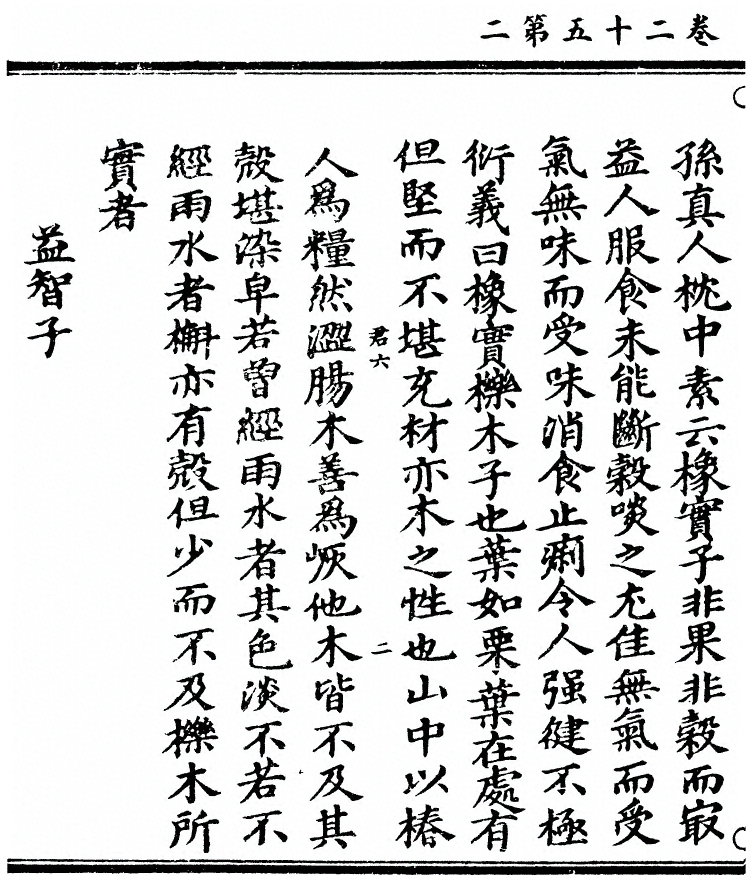 卷二十五第二
孫真人枕中素云橡實子非果非穀而冣
益人服食未能斷穀啖之尤佳無氣而受
氣無味而受味消食止痢令人强健不極
衍義曰橡實櫟木子也葉如栗葉在處有
但堅而不堪充材亦木之性也山中以椿
君六
二
人爲糧然澀腸木善爲炭他木皆不及其
殼堪染皁若曾經雨水者其色淡不若不
經雨水者槲亦有殼但少而不及櫟木所
實者
益智子